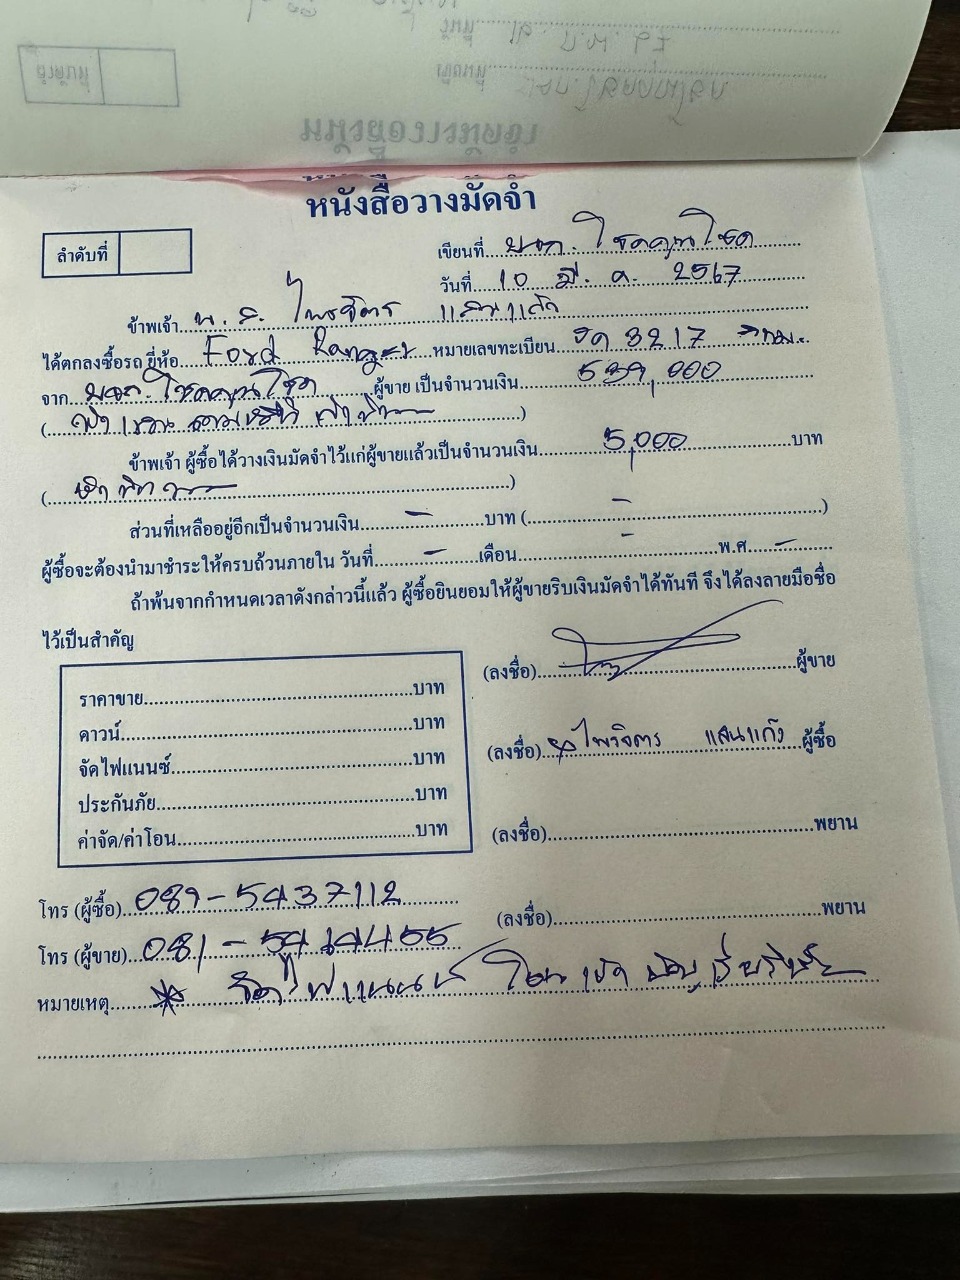 หนังสือวางมัดจำ
ลำดับที่
เขียนที่ หจก. โชคคูณโชค
วันที่ 10 มี. ค. 2567
ข้าพเจ้า น. ส. ไพรจิตร แสนแก้ว
ได้ตกลงซื้อรถ ยี่ห้อ Ford Ranger หมายเลขทะเบียน 3217 กทม.
จาก หจก. โชคคูณโชค ผู้ขาย เป็นจำนวนเงิน 539,000
(ห้าแสนสามหมื่นเก้าพัน)
ข้าพเจ้า ผู้ซื้อได้วางเงินมัดจำไว้แก่ผู้ขายแล้วเป็นจำนวนเงิน 5,000 บาท
(ห้าพัน)
ส่วนที่เหลืออยู่อีกเป็นจำนวนเงิน - บาท ( - )
ผู้ซื้อจะต้องนำมาชำระให้ครบถ้วนภายใน วันที่ - เดือน - พ.ศ. -
ถ้าพ้นจากกำหนดเวลาดังกล่าวนี้แล้ว ผู้ซื้อยินยอมให้ผู้ขายริบเงินมัดจำได้ทันที จึงได้ลงลายมือชื่อ
ไว้เป็นสำคัญ
(ลงชื่อ) ผู้ขาย
ราคาขาย บาท
ดาวน์ บาท
(ลงชื่อ) ไพรจิตร แสนแก้ว ผู้ซื้อ
จัดไฟแนนซ์ บาท
ประกันภัย บาท
(ลงชื่อ) พยาน
ค่าจัด/ค่าโอน บาท
โทร (ผู้ซื้อ) 089-5437112
(ลงชื่อ) พยาน
โทร (ผู้ขาย) 081-5414455
หมายเหตุ * จัดไฟแนนซ์ โอนเข้าบัญชี